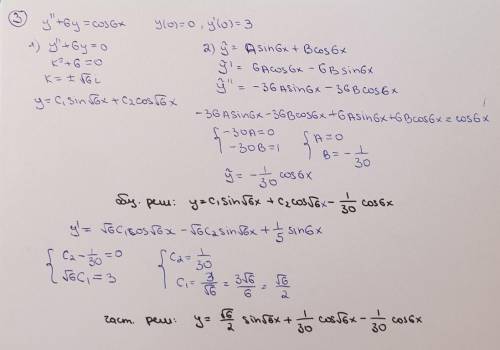 ③ y''+6y=cos6x y(0)=0, y'(0)=3
1) y''+6y=0
k²+6=0
k=±√6i
y=C₁sin√6x+C₂cos√6x
2) ỹ=Asin6x+Bcos6x
ỹ'=6Acos6x-6Bsin6x
ỹ''=-36Asin6x-36Bcos6x
-36Asin6x-36Bcos6x+6Asin6x+6Bcos6x=cos6x
{-30A=0 {A=0
{-30B=1 {B=-1/30
ỹ=-1/30 cos6x
общ. реш: y=C₁sin√6x+C₂cos√6x-1/30 cos6x
y'=√6C₁cos√6x-√6C₂sin√6x+1/5 sin6x
{C₂-1/30=0 {C₂=1/30
{√6C₁=3 {C₁=3/√6=3√6/6=√6/2
част. реш: y=√6/2 sin√6x+1/30 cos√6x-1/30 cos6x